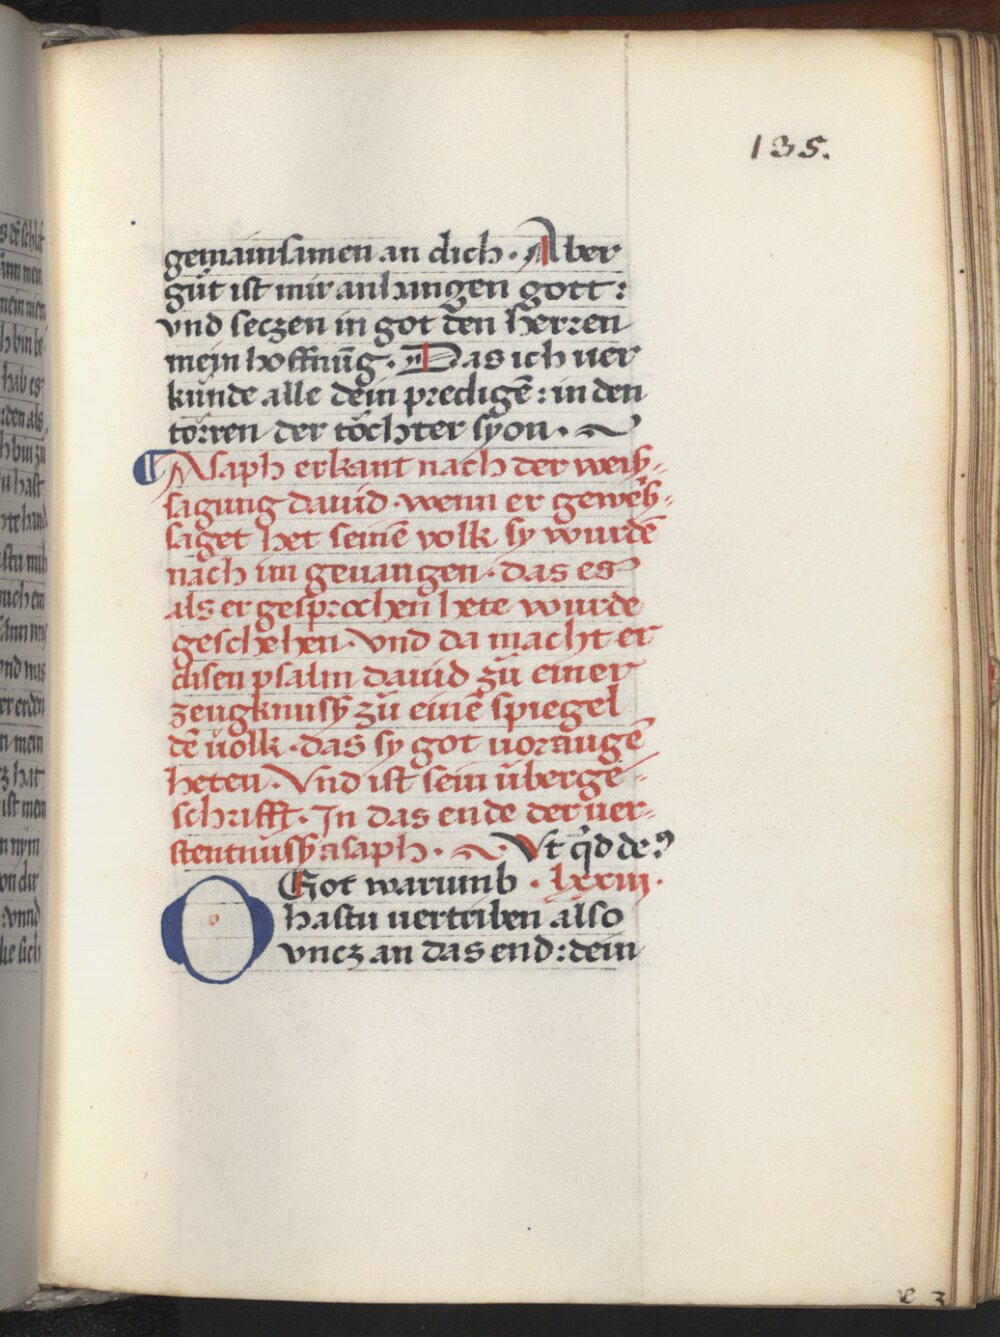 135.
gemainsamen an dich · Aber
gůt ist mir anhangen gott :
vnd seczen in got den herren
mein hoffnūg · Das ich uer
kunde alle dein predigē : in den
torren der töchter syon ·
¶ Asaph erkant nach der weiß-
sagung dauid · wenn er geweß-
saget het seinē volk sy wurdē
nach im geuangen · das es
als er gesprochen hete wurde
geschehen · Vnd da macht er
disen psalm dauid zů einer
zeugknusß zů einē spiegel
dē uolk · das sy got uoraugē
heten · Vnd ist sein übergē-
schrifft · In das ende der uer-
stentnusß asaph · Vt qd de9
O Got warumb · lxxiii ·
hastu uertriben also
vncz an das end : dein